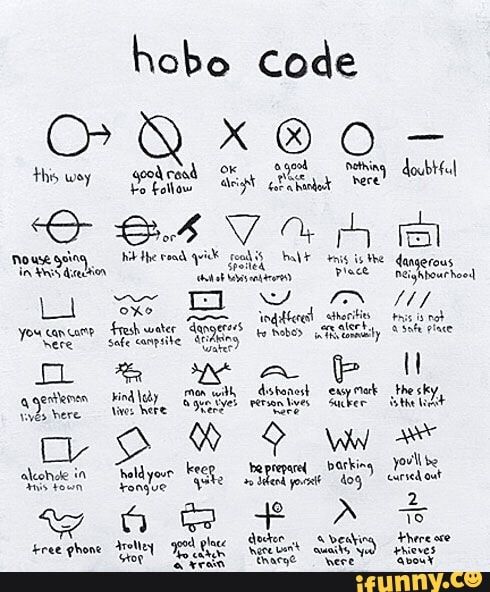 hobo code
this way
good road
to follow
OK
alright
a good
place
for a handout
nothing
here
doubtful
no use going
in this direction
or
hit the road quick
road is
spoiled
(full of hobo's and tramps)
halt
this is the
place
dangerous
neighbourhood
you can camp
here
fresh water
safe campsite
dangerous
drinking
water
indifferent
to hobo's
athorities
are alert
in this community
this is not
a safe place
a gentleman
lives here
kind lady
lives here
man with
a gun lives
here
dishonest
person lives
here
easy mark
sucker
the sky
is the limit
alcohole in
this town
hold your
tongue
keep
quite
be prepared
to defend yourself
barking
dog
you'll be
cursed out
free phone
trolley
stop
good place
to catch
a train
doctor
here won't
charge
a beating
awaits you
here
2
10
there are
thieves
about
ifunny.co